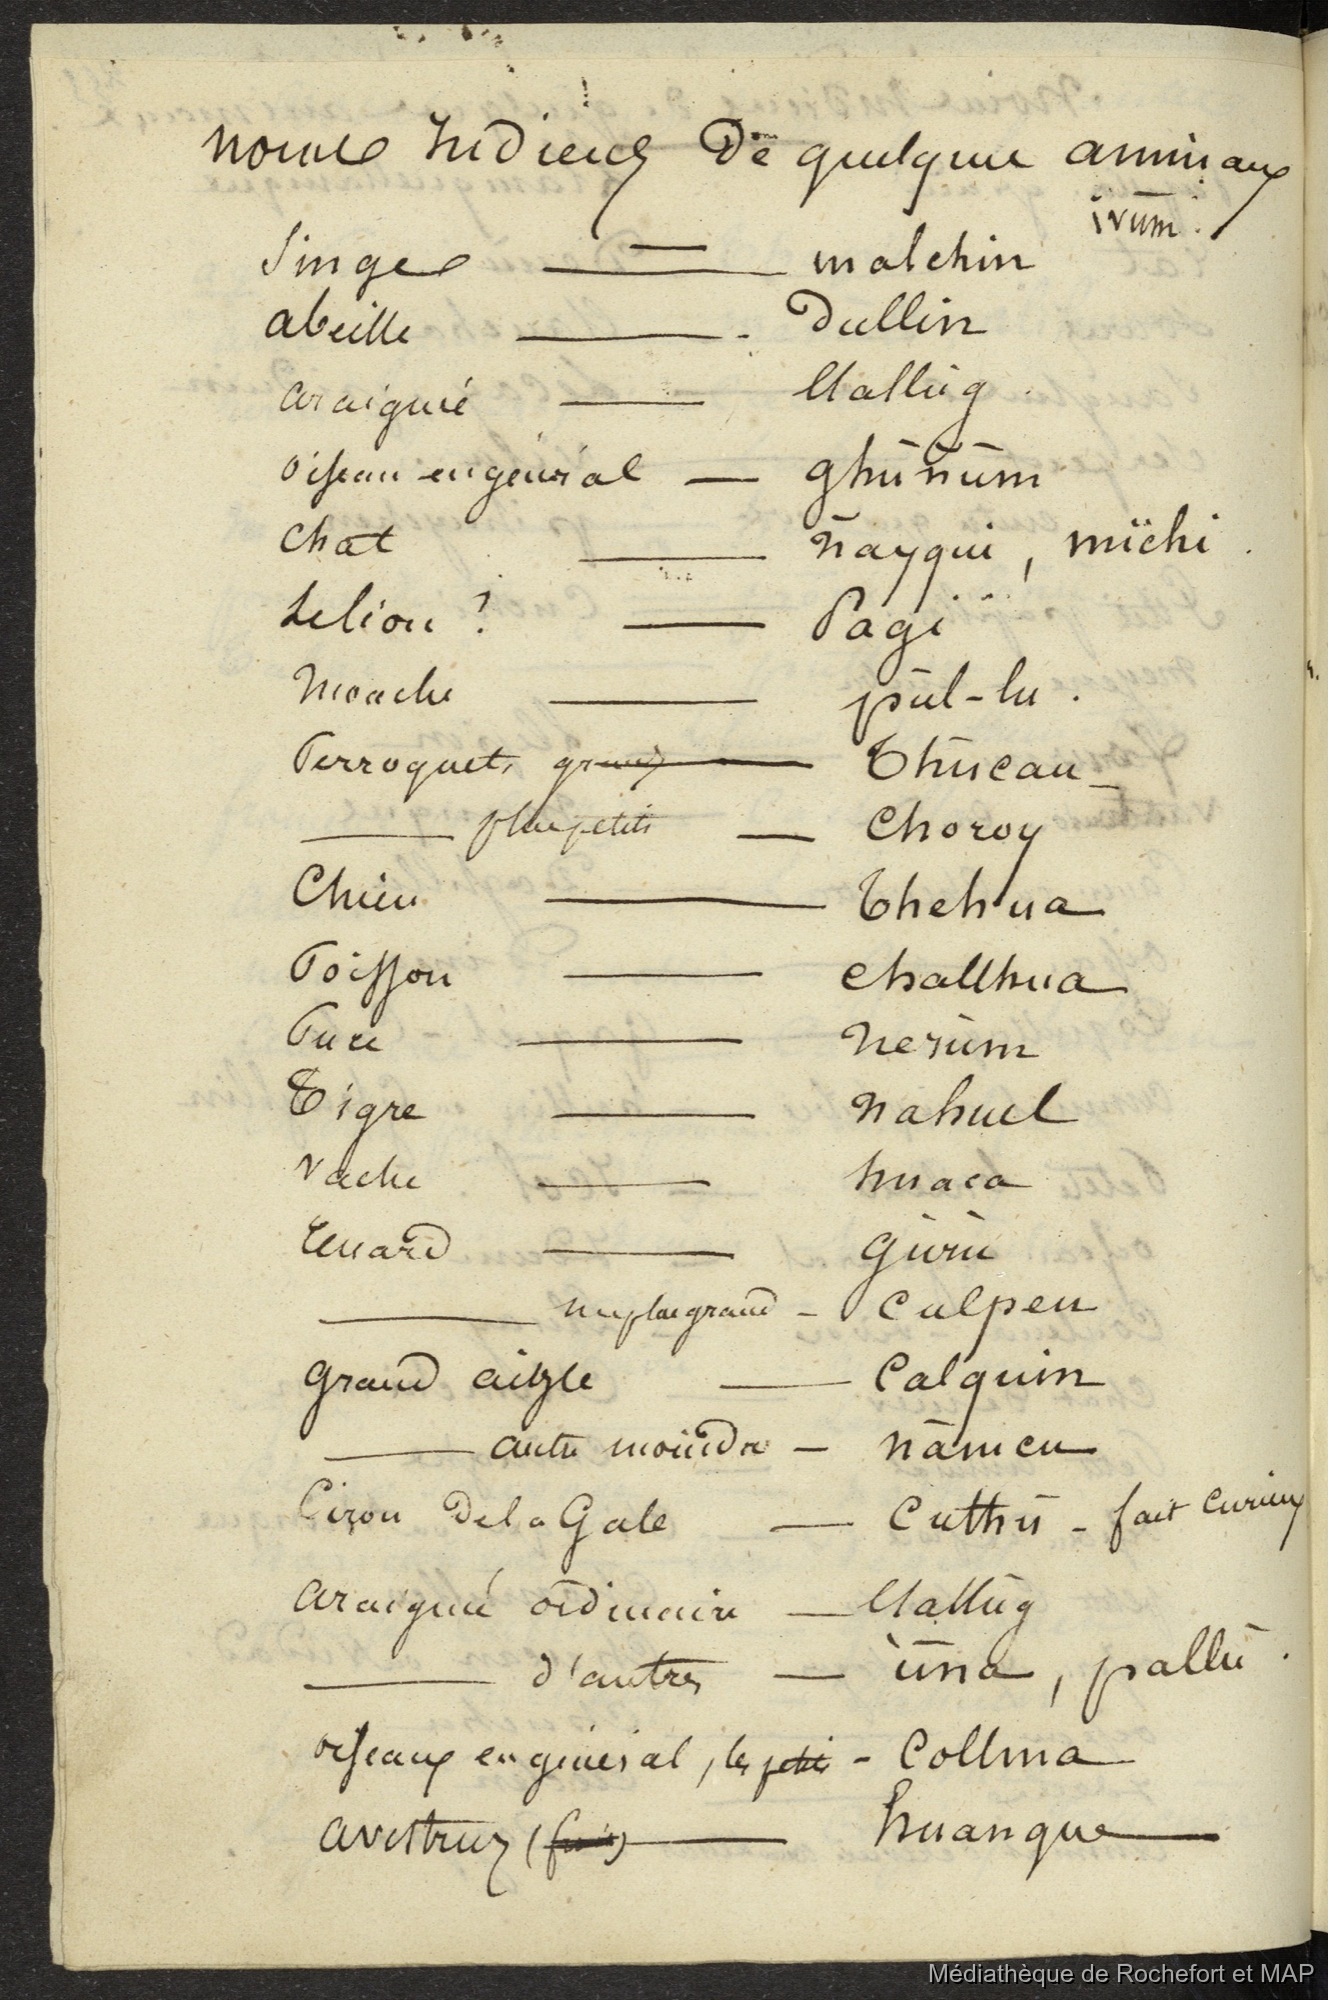 noms Indiens De quelques animaux
ivũm.
Singes — malchin
abeille — Dullin
araignié — llallũg
oiseau en général — ghũñũm
Chat — ñayqui, mïchi.
Le lion? — Pagi
Mouche — pũl-lu.
Perroquets grands — Thũcau
— plus petits — Choroy
Chien — Thehua
Poisson — challhua
Puce — Nerũm
Tigre — Nahuel
Vache — huaca
Renard — gũrũ
— un plus grand — Culpeu
grand aigle — Calquin
— autre moindre — ñamcu
Ciron de la Gale — Cuthũ - fait curieux
araignié ordinaire — llallũg
— d'autres — ũna, pallũ.
oiseaux en général, les petits — Collma
avestruz — huanque
Médiathèque de Rochefort et MAP